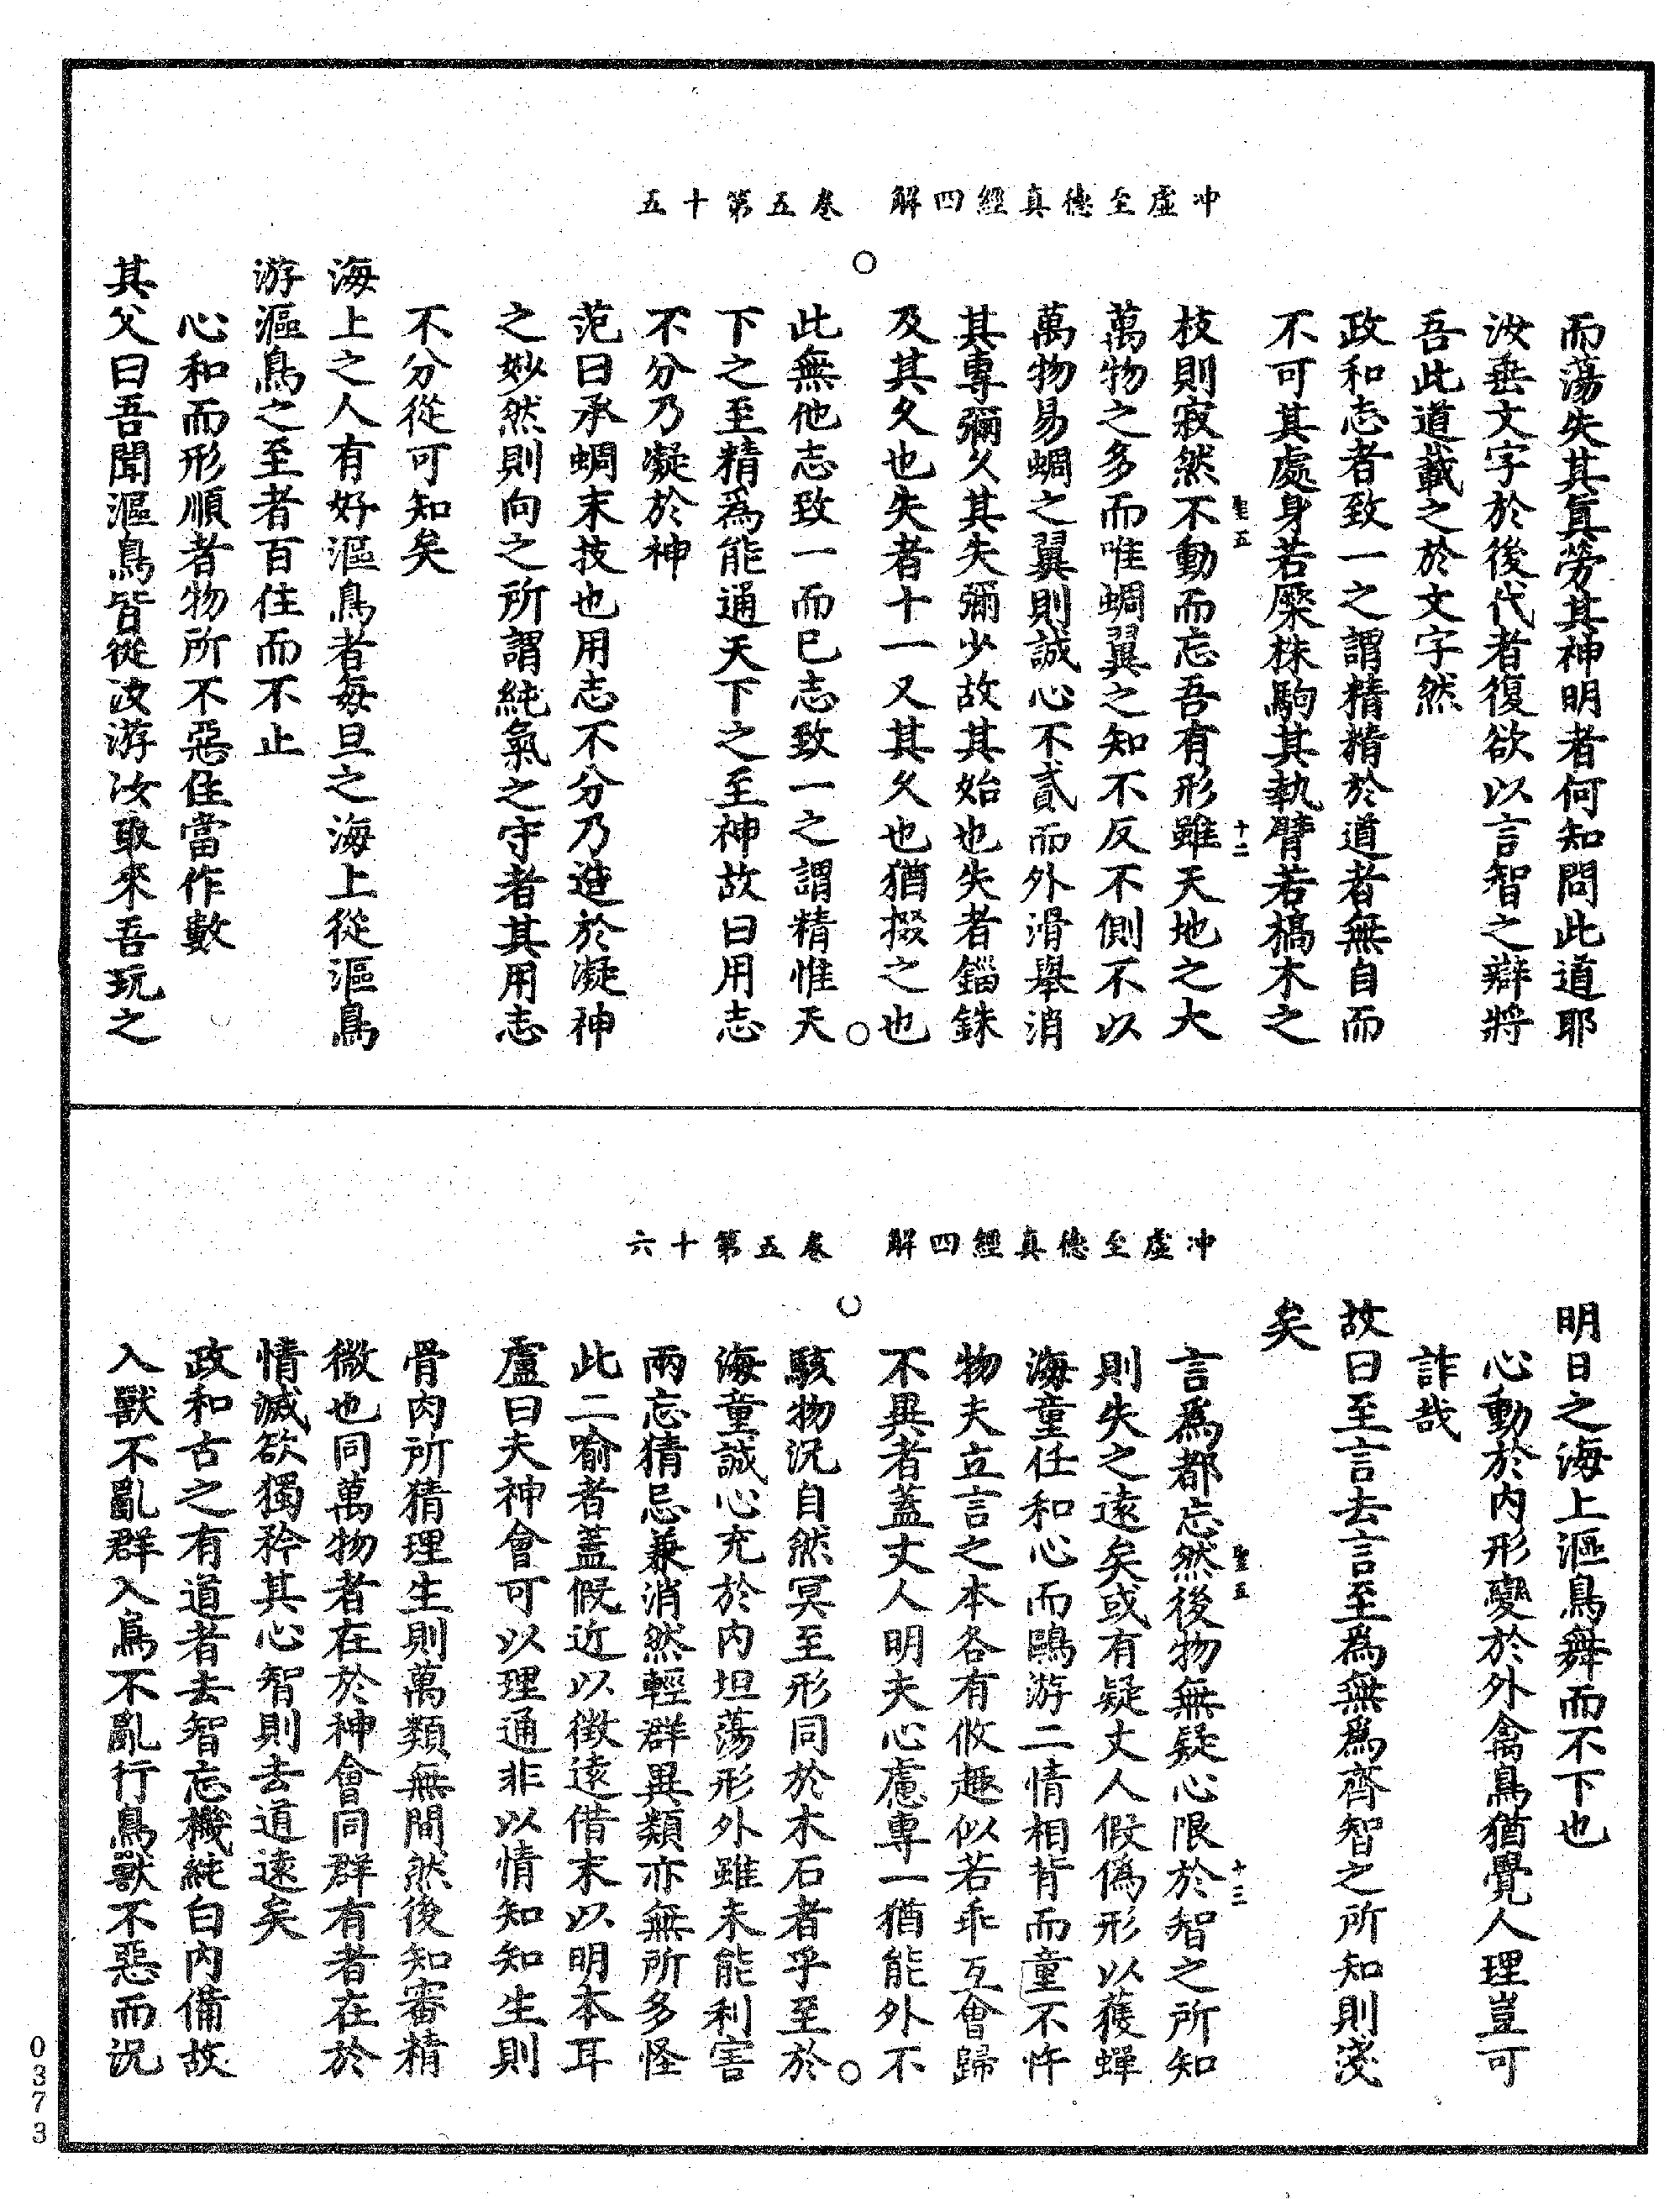 冲虛至德真經四解　卷五第十五
而蕩失其真勞其神明者何知問此道耶
汝垂文字於後代者復欲以言智之辯將
吾此道載之於文字然
政和志者致一之謂精精於道者無自而
不可其處身若橜株駒其執臂若槁木之
枝則寂然不動而忘吾有形雖天地之大
聖五
十二
萬物之多而唯蜩翼之知不反不側不以
萬物易蜩之翼則誠心不貳而外滑舉消
其專彌久其失彌少故其始也失者錙銖
及其久也失者十一又其久也猶掇之也
此無他志致一而已志致一之謂精惟天
下之至精爲能通天下之至神故曰用志
不分乃凝於神
范曰承蜩末技也用志不分乃造於凝神
之妙然則向之所謂純氣之守者其用志
不分從可知矣
海上之人有好漚鳥者每旦之海上從漚鳥
游漚鳥之至者百住而不止
心和而形順者物所不惡住當作數
其父曰吾聞漚鳥皆從汝游汝取來吾玩之
冲虛至德真經四解　卷五第十六
明日之海上漚鳥舞而不下也
心動於內形變於外禽鳥猶覺人理豈可
詐哉
故曰至言去言至爲無爲齊智之所知則淺
矣
言爲都忘然後物無疑心限於智之所知
聖五
十三
則失之遠矣或有疑丈人假偽形以獲蟬
海童任和心而鷗游二情相背而童不忤
物夫立言之本各有攸趣似若乖互會歸
不異者蓋丈人明夫心慮專一猶能外不
駭物況自然冥至形同於木石者乎至於
海童誠心充於內坦蕩形外雖未能利害
兩忘猜忌兼消然輕群異類亦無所多怪
此二喻者蓋假近以徵遠借末以明本耳
盧曰夫神會可以理通非以情知知生則
骨肉所猜理生則萬類無間然後知審精
微也同萬物者在於神會同群有者在於
情滅欲獨矜其心智則去道遠矣
政和古之有道者去智忘機純白內備故
入獸不亂群入鳥不亂行鳥獸不惡而況
0373